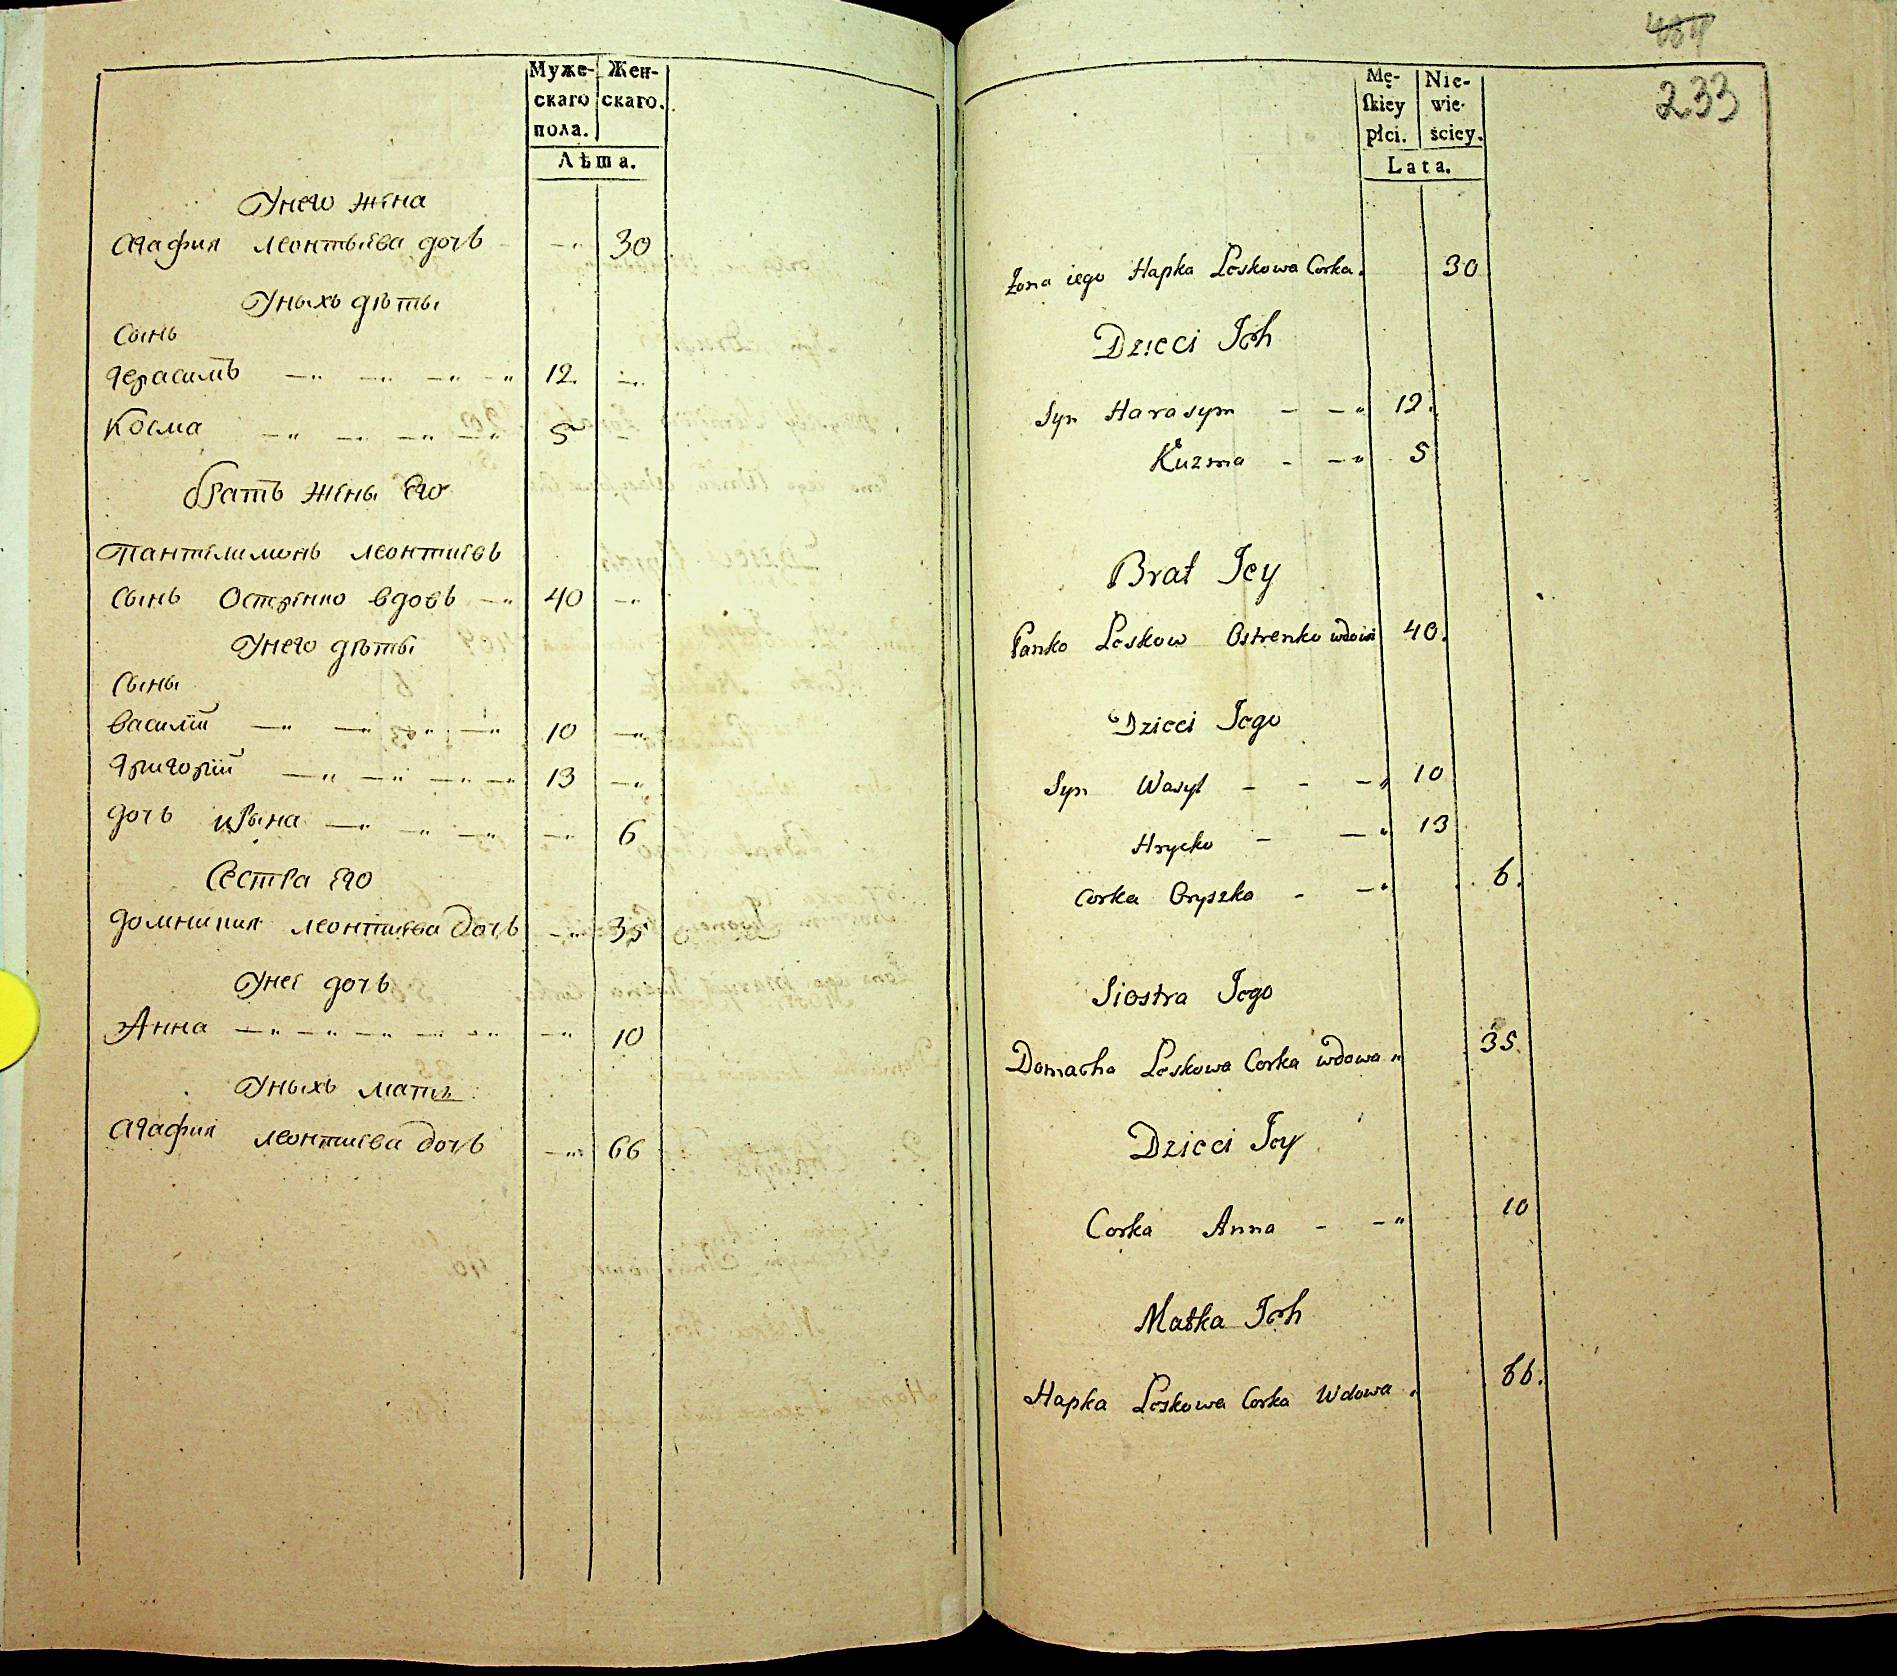 Муже-
скаго
пола.
Жен-
скаго.
Лѣта.
Унего жена
Агафия леонтьева дочь 30
Уныхъ дѣты
Сынъ
Герасимъ 12
Косма 5
братъ жены его
Пантелимонъ леонтиевъ
сынъ Остренко вдовъ 40
Унего дѣты
Сыны
василий 10
Григорий 13
дочь ирына 6
Сестра его
домникия леонтиева дочь 35
Унеё дочь
Анна 10
Уныхъ мати
Агафия леонтиева дочь 66
233
Mę-
skiey
płci.
Nie-
wie-
ściey.
Lata.
Żona iego Hapka Leskowa Corka 30
Dzieci Ich
Syn Harasym 12.
Kuzma 5
Brat Jey
Panko Leskow Ostrenko wdowi 40.
Dzieci Jego
Syn Wasyl 10
Hrycko 13
Corka Oryszka 6.
Siostra Jego
Domacha Leskowa Corka wdowa 35.
Dzieci Jey
Corka Anna 10
Matka Ich
Hapka Leskowa Corka Wdowa 66.